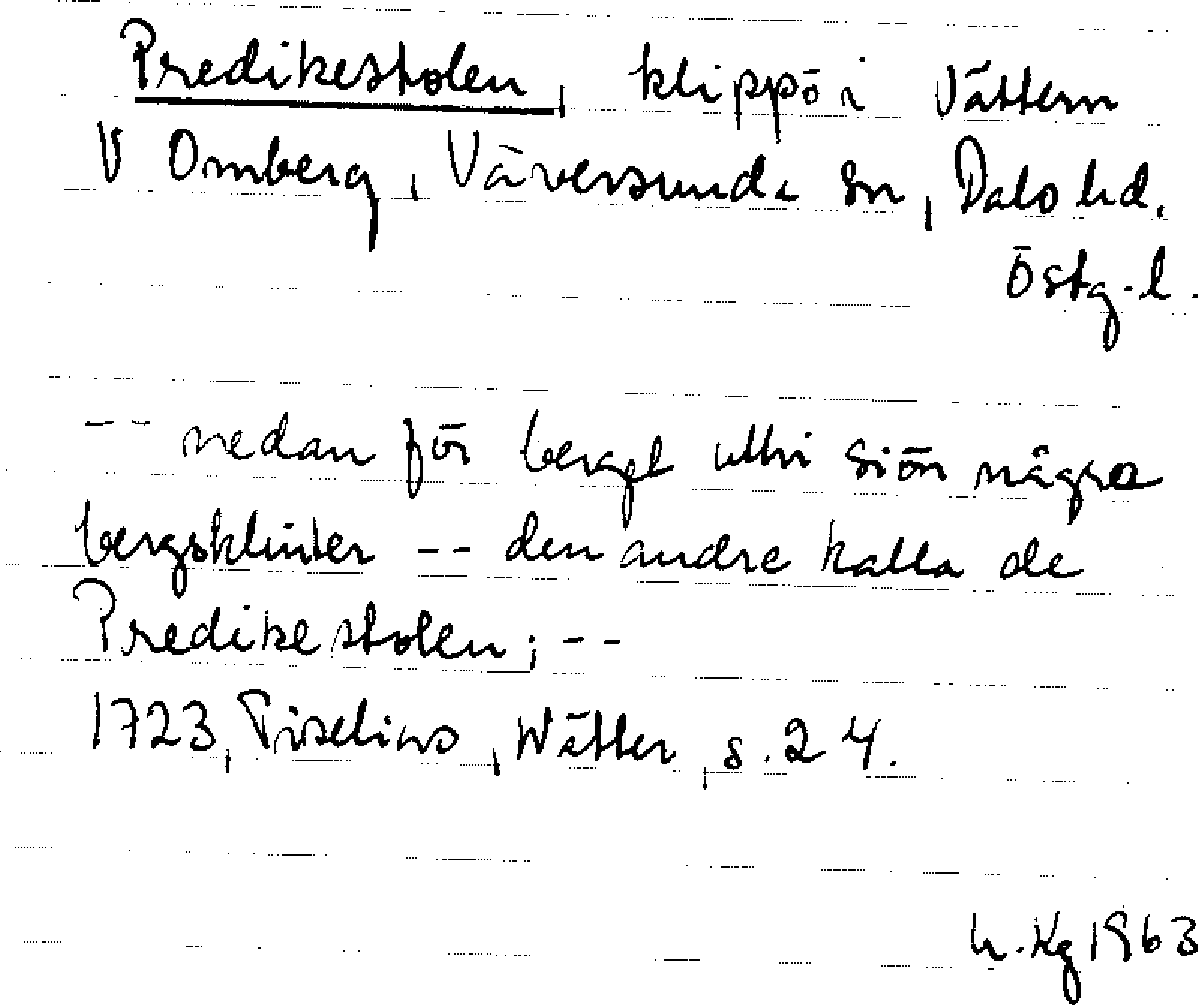 Predikestolen, klippö i Vättern
V Omberg, Väversunda sn, Dals hd.
Östg.l.
-- nedan för bergt uthi siön någre
bergsklinter -- den andre kalla de
Predikestolen; --
1723, Tiselius, Wätter, s. 24.
Kg 1963